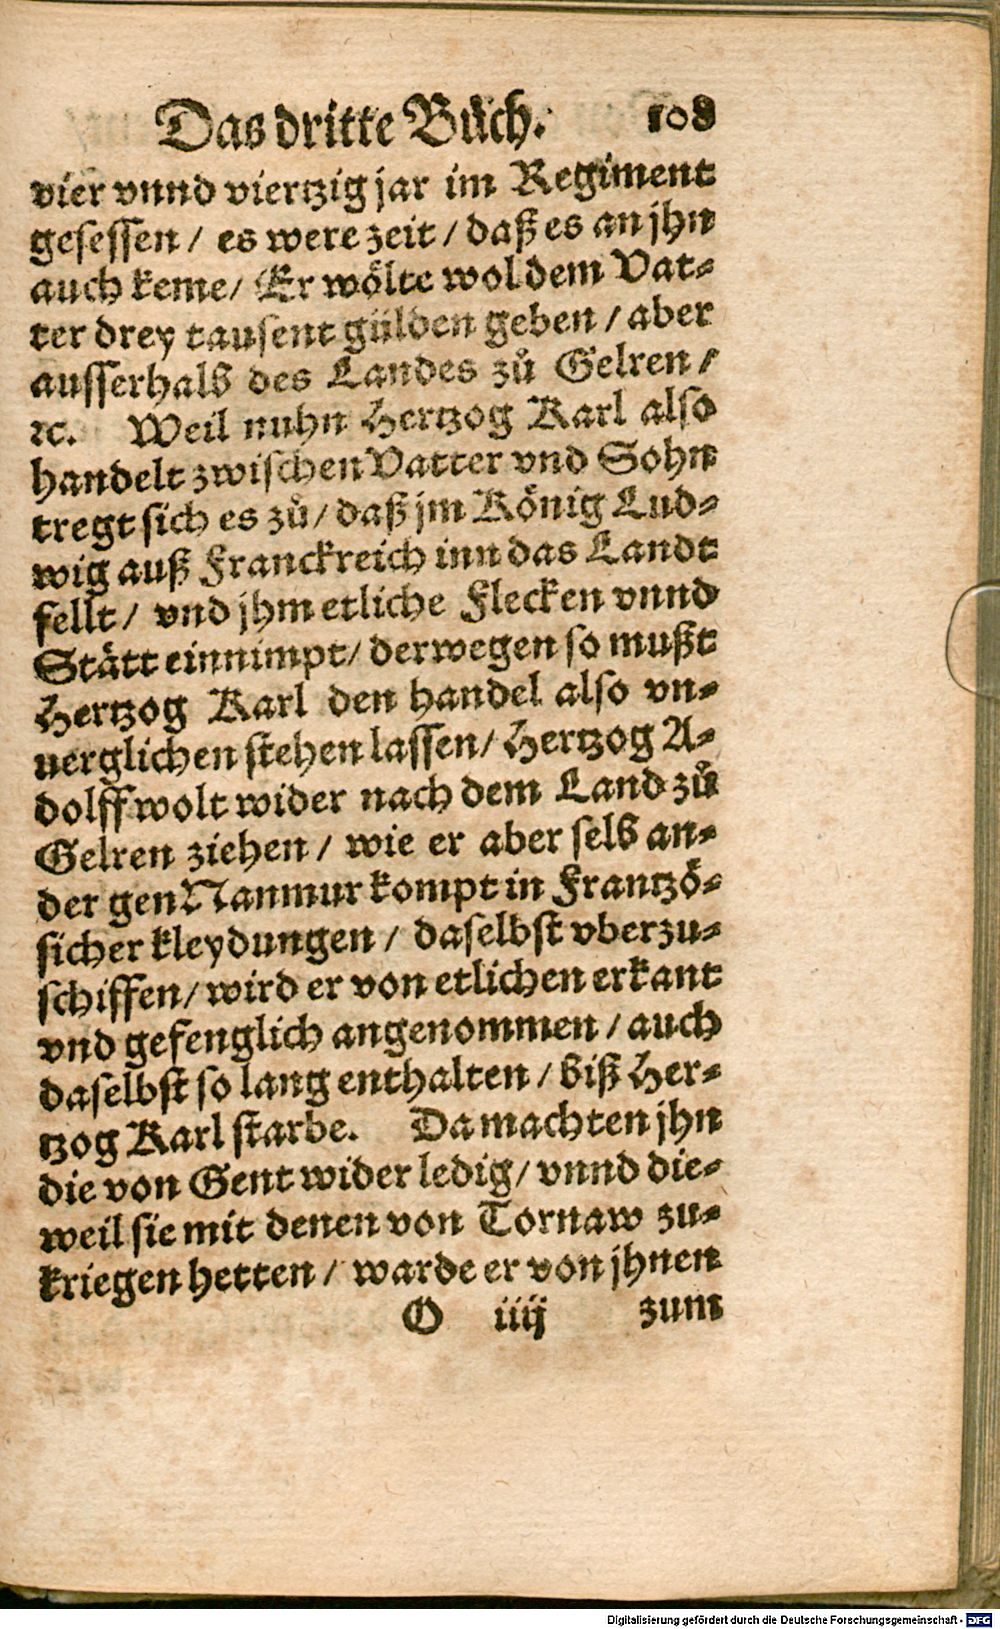 Das dritte Buͤch. 108
vier vnnd viertzig jar im Regiment
gesessen / es were zeit / daß es an jhn
auch keme / Er woͤlte wol dem Vat⸗
ter drey tausent guͤlden geben / aber
ausserhalb des Landes zuͦ Gelren /
ꝛc. Weil nuhn Hertzog Karl also
handelt zwischen Vatter vnd Sohn
tregt sich es zuͦ / daß jm Koͤnig Lud⸗
wig auß Franckreich inn das Landt
fellt / vnd jhm etliche Flecken vnnd
Staͤtt einnimpt / derwegen so mußt
Hertzog Karl den handel also vn⸗
uerglichen stehen lassen / Hertzog A⸗
dolff wolt wider nach dem Land zuͦ
Gelren ziehen / wie er aber selb an⸗
der gen Nanmur kompt in Frantzoͤ⸗
sicher kleydungen / daselbst vberzu⸗
schiffen / wird er von etlichen erkant
vnd gefenglich angenommen / auch
daselbst so lang enthalten / biß Her⸗
tzog Karl starbe. Da machten jhn
die von Gent wider ledig / vnnd die⸗
weil sie mit denen von Tornaw zu⸗
kriegen hetten / warde er von jhnen
O iiij zum
Digitalisierung gefördert durch die Deutsche Forschungsgemeinschaft - DFG